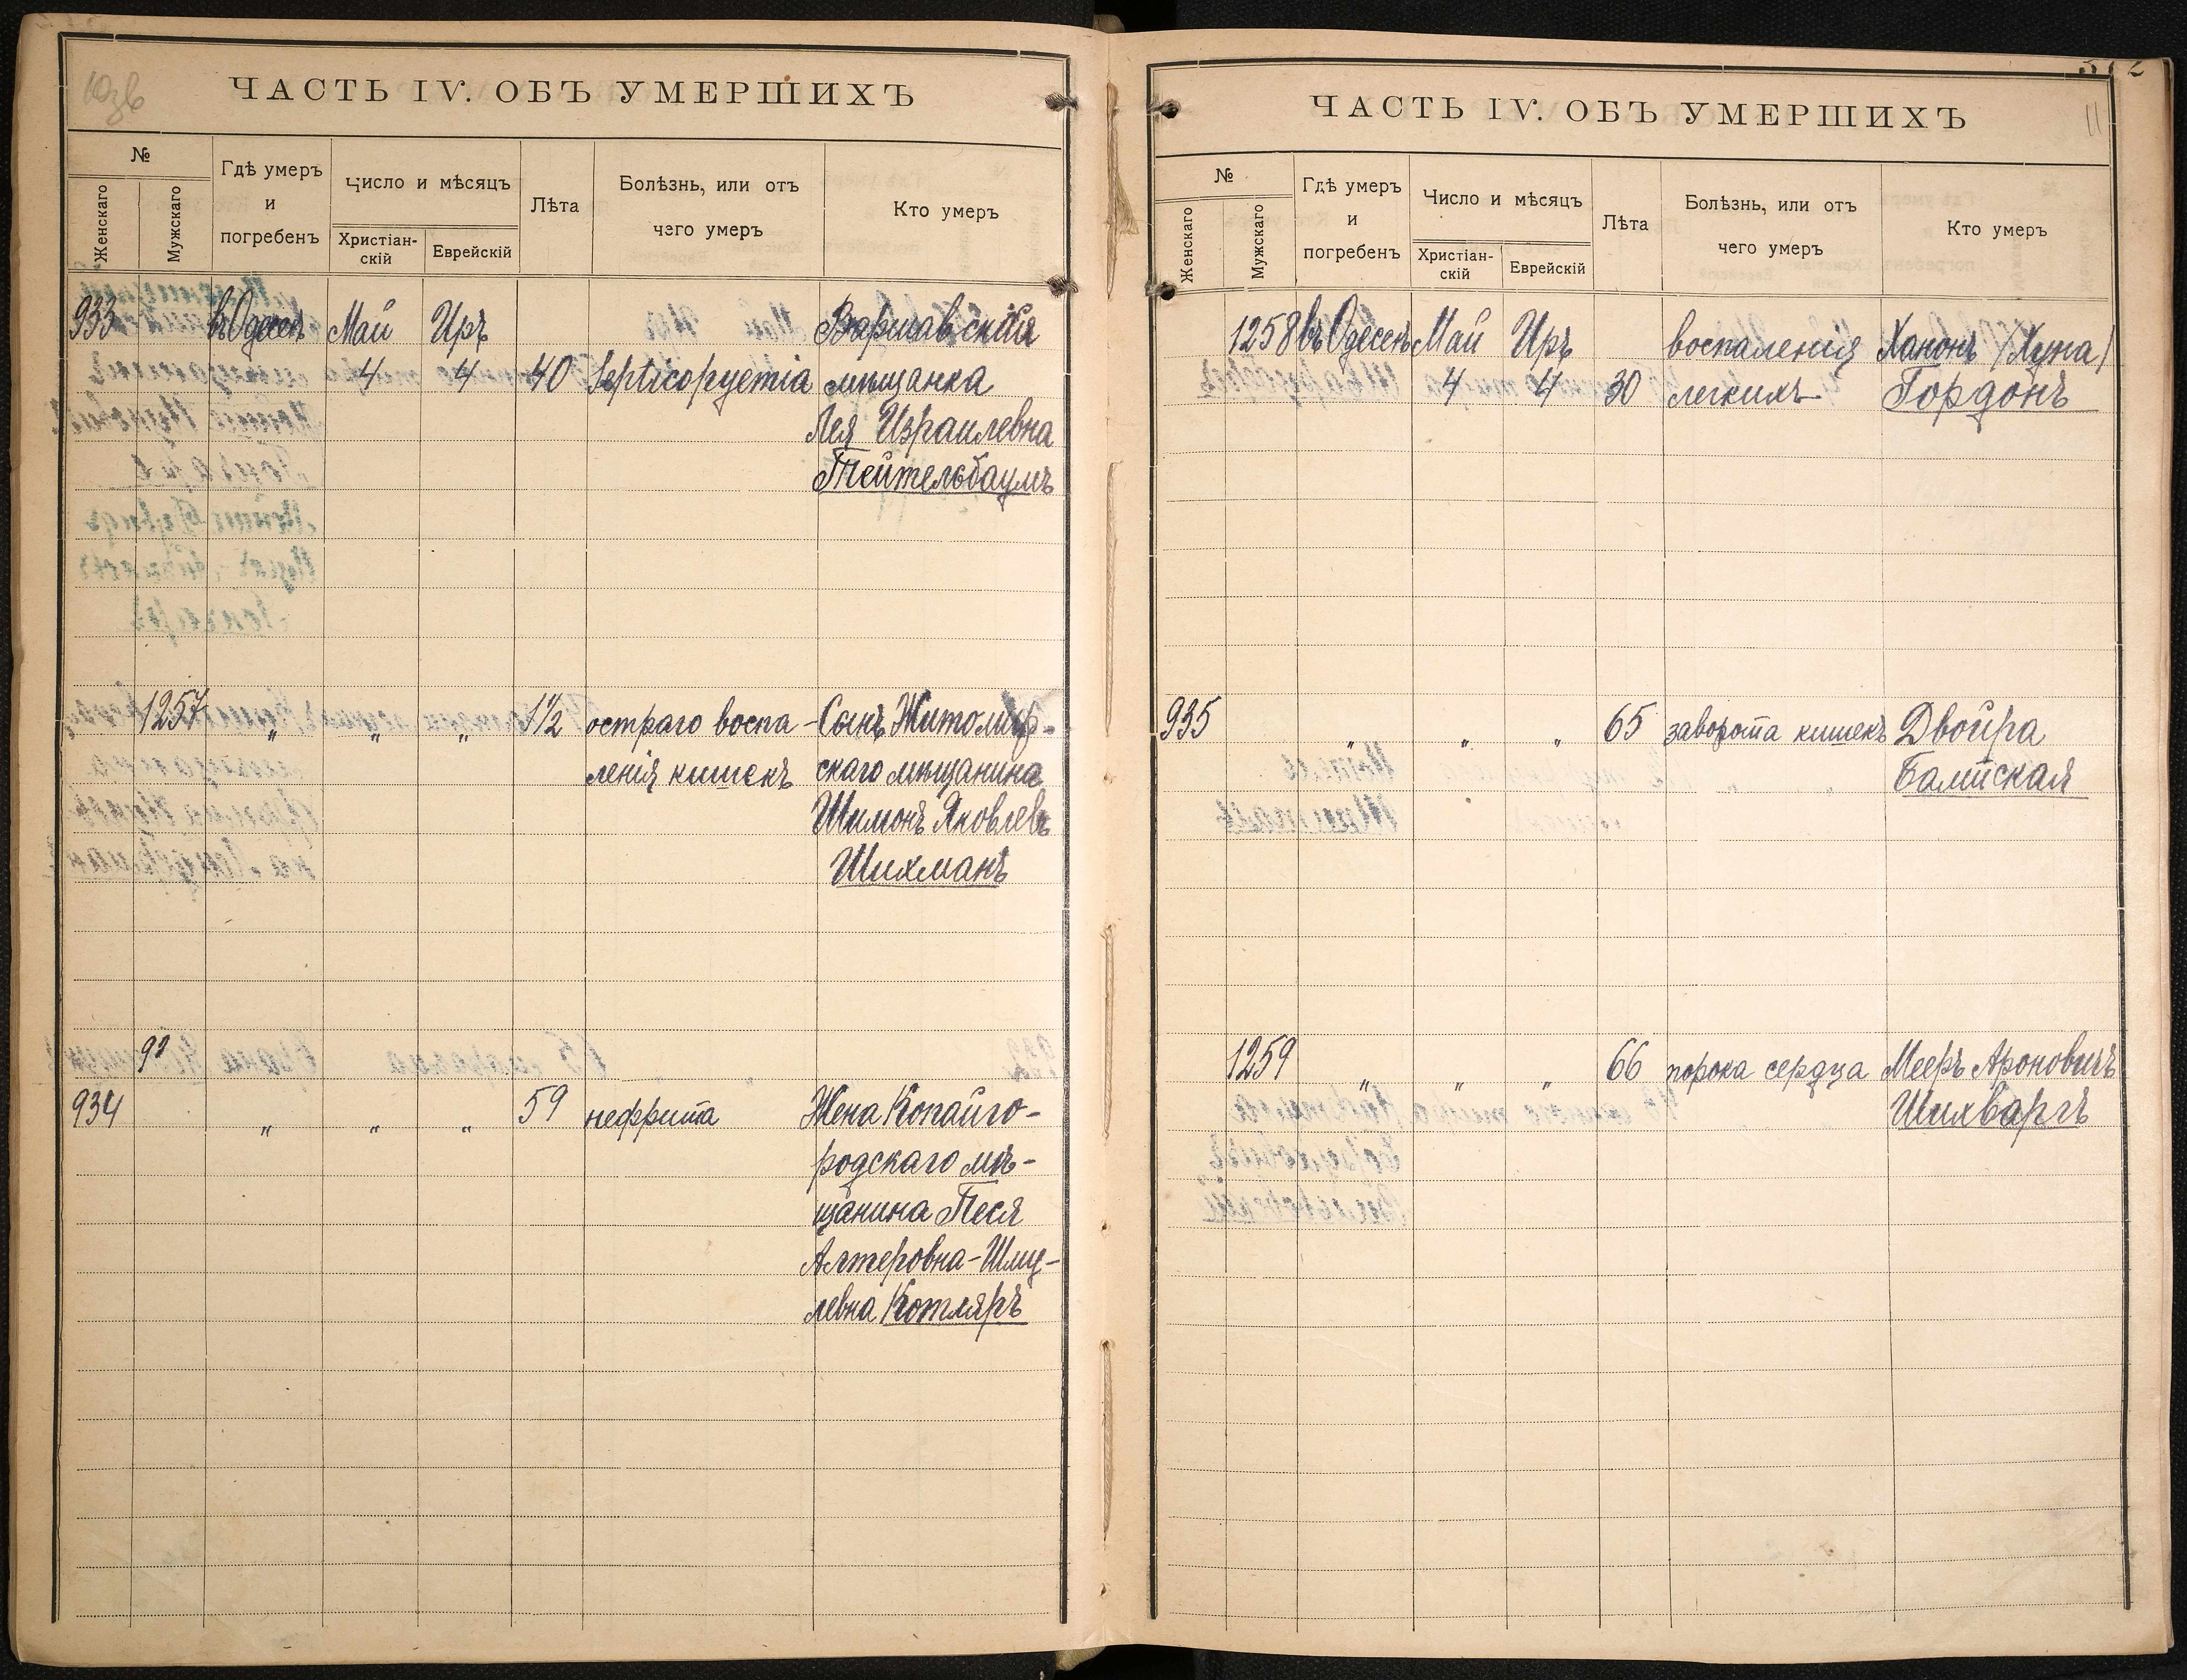 10зв
ЧАСТЬ IV. ОБЪ УМЕРШИХЪ
№
Женскаго
Мужскаго
Гдѣ умеръ
и
погребенъ
Число и мѣсяцъ
Христіан-
скій
Еврейскій
Лѣта
Болѣзнь, или отъ
чего умеръ
Кто умеръ
933 въ Одессѣ Май Иръ Варшавская
4 4 40 Septicopyemia мѣщанка
Лея Израилевна
Тейтельбаумъ
1257 „ „ „ 1½ остраго воспа- Сынъ Житомир-
ленія кишекъ скаго мѣщанина
Шимонъ Яковлевъ
Шихманъ
93
934 „ „ „ 59 нефрита Жена Копайго-
родскаго мѣ-
щанина Песя
Алтеровна-Шму-
левна Котляръ
11
ЧАСТЬ IV. ОБЪ УМЕРШИХЪ
№
Женскаго
Мужскаго
Гдѣ умеръ
и
погребенъ
Число и мѣсяцъ
Христіан-
скій
Еврейскій
Лѣта
Болѣзнь, или отъ
чего умеръ
Кто умеръ
1258 въ Одессѣ Май Иръ воспаленія Ханонъ /Хуна/
4 4 30 легкихъ Гордонъ
935 „ „ „ 65 заворота кишекъ Двойра
Балтская
1259 „ „ „ 66 порока сердца Мееръ Ароновичъ
Шихваргъ